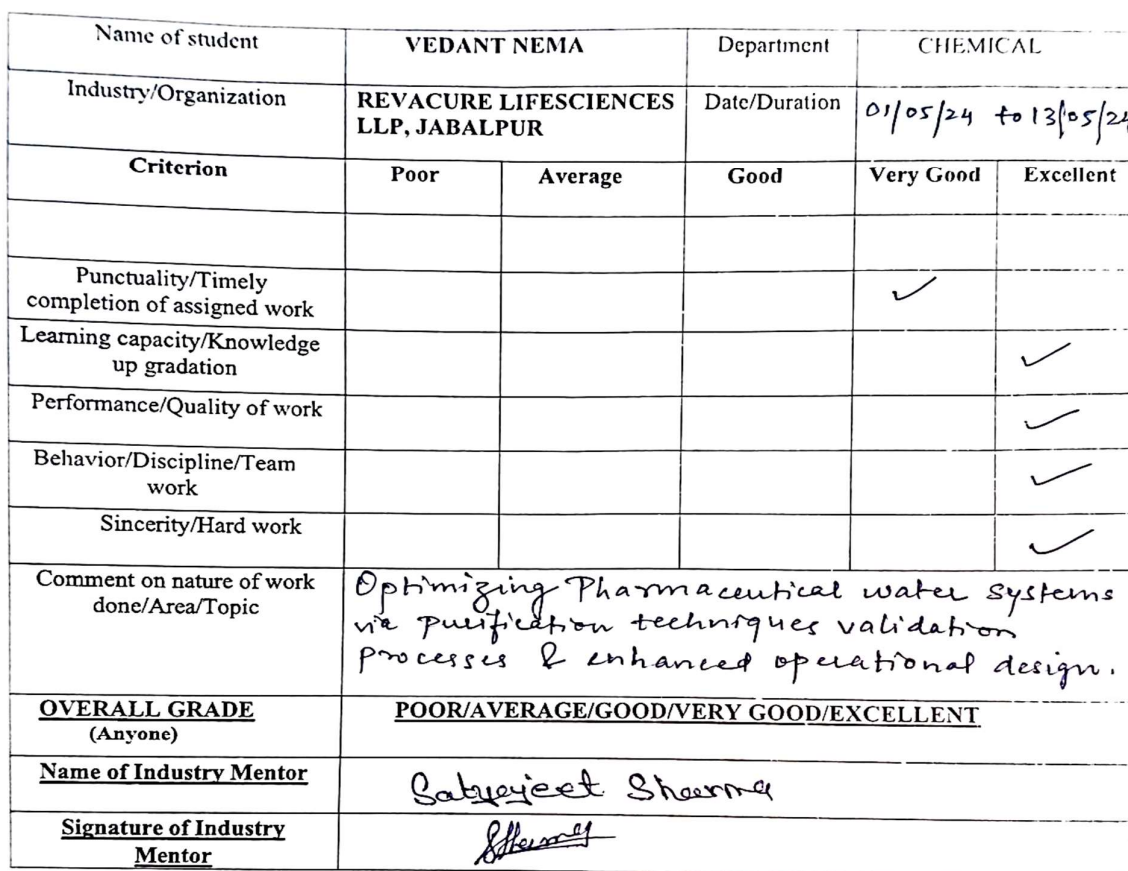 Name of student VEDANT NEMA Department CHEMICAL
Industry/Organization REVACURE LIFESCIENCES Date/Duration 01/05/24 to 13/05/24
LLP, JABALPUR
Criterion Poor Average Good Very Good Excellent
Punctuality/Timely
completion of assigned work ✓
Learning capacity/Knowledge
up gradation ✓
Performance/Quality of work ✓
Behavior/Discipline/Team
work ✓
Sincerity/Hard work ✓
Comment on nature of work
done/Area/Topic
Optimizing Pharmaceutical water systems
via purification techniques validation
processes & enhanced operational design.
OVERALL GRADE POOR/AVERAGE/GOOD/VERY GOOD/EXCELLENT
(Anyone)
Name of Industry Mentor Satyejeet Sharma
Signature of Industry
Mentor